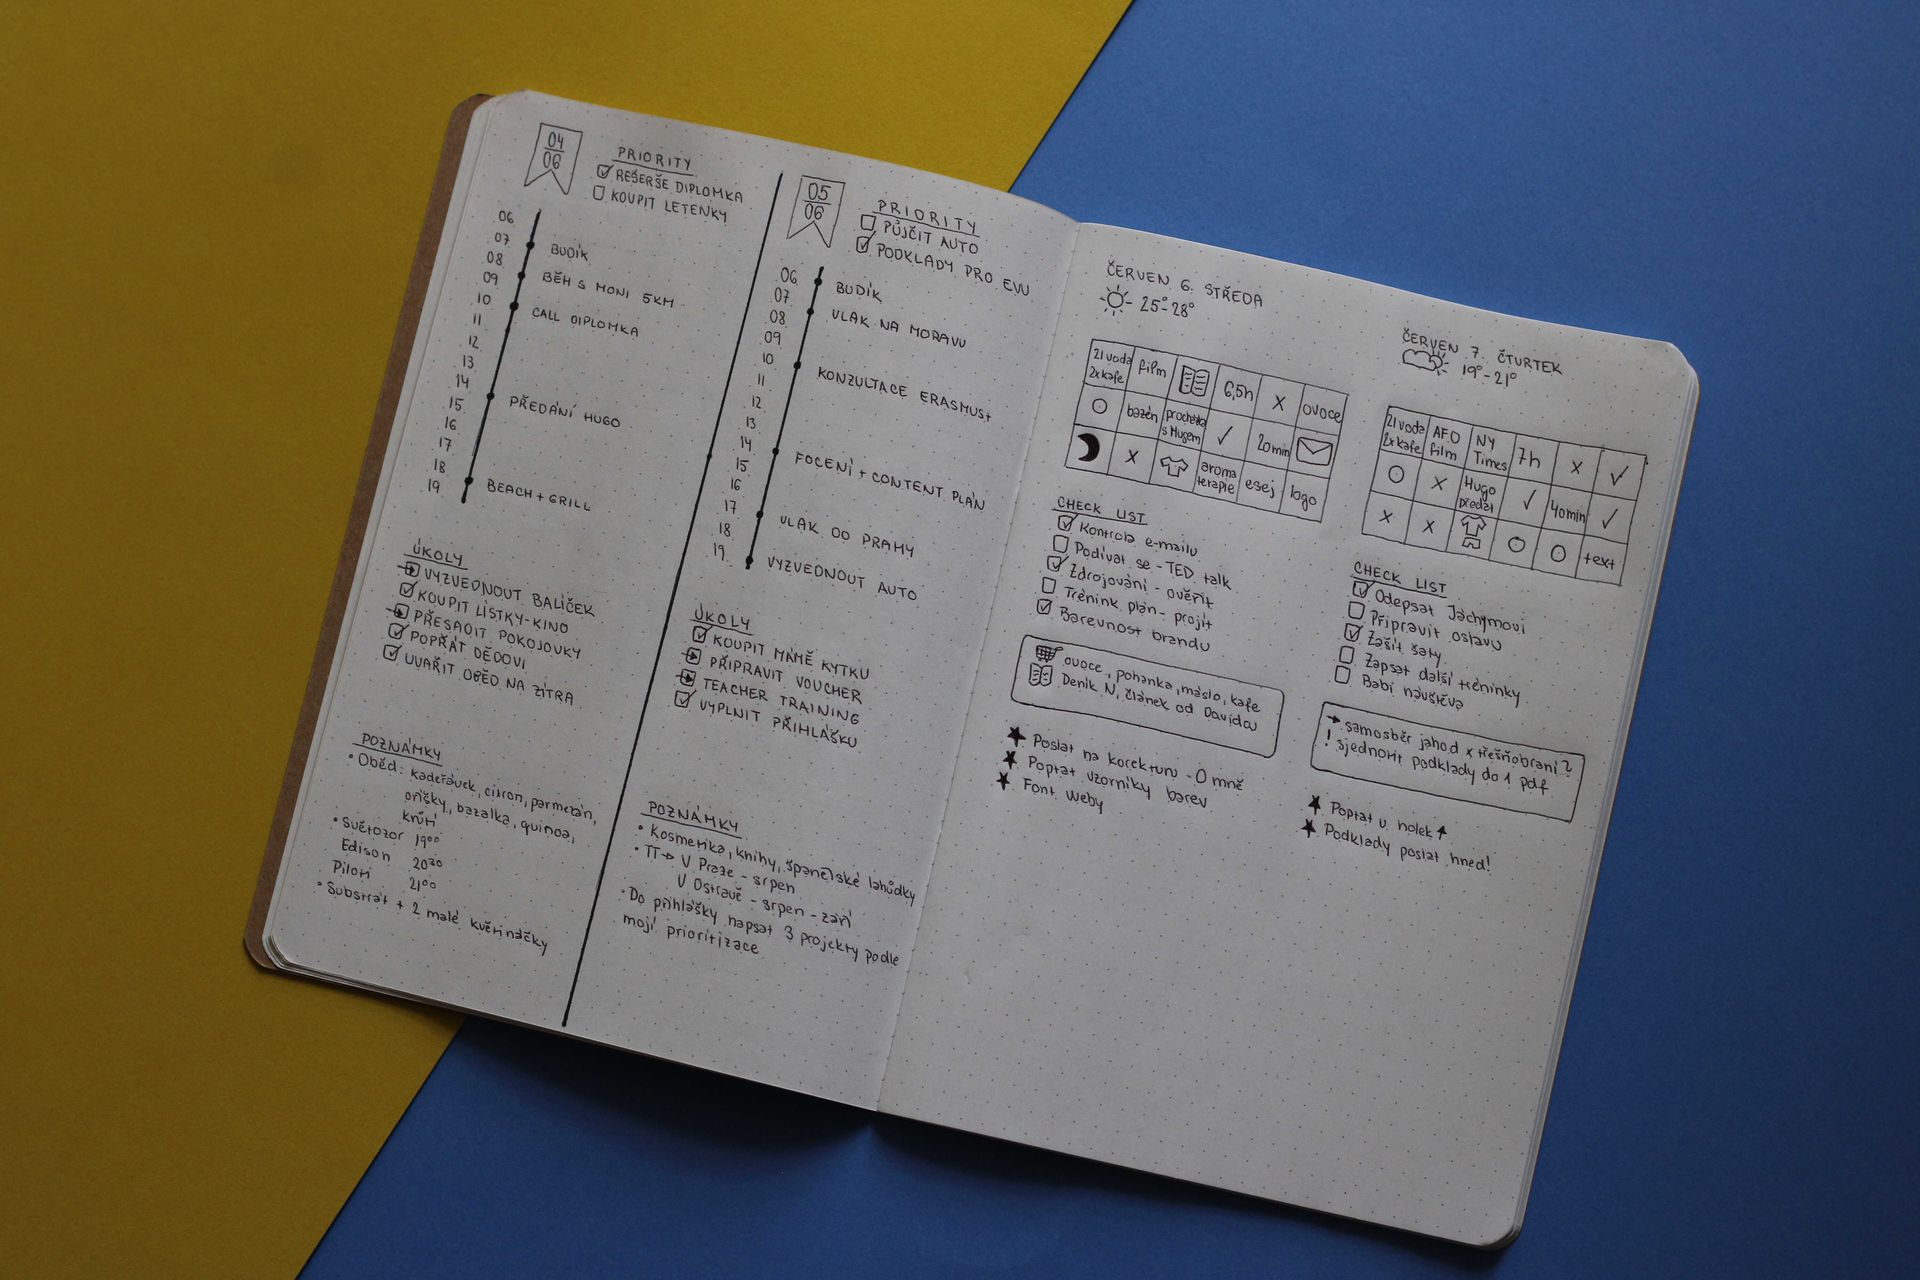 04
06
PRIORITY
REŠERŠE DIPLOMKA
KOUPIT LETENKY
06
07
BUDÍK
08
09
BĚH S MONI 5KM
10
CALL DIPLOMKA
11
12
13
14
PŘEDÁNÍ HUGO
15
16
17
18
BEACH + GRILL
19
ÚKOLY
VYZVEDNOUT BALÍČEK
KOUPIT LÍSTKY-KINO
PŘESADIT POKOJOVKY
POPŘÁT DĚDOVI
UVAŘIT OBĚD NA ZÍTRA
POZNÁMKY
• Oběd: kadeřávek, citron, parmezán,
oříšky, bazalka, quinoa,
krůtí
• Světozor 19⁰⁰
Edison 20³⁰
Piloti 21⁰⁰
• Substrát + 2 malé květináčky
05
06
PRIORITY
PŮJČIT AUTO
PODKLADY PRO EVU
06
BUDÍK
07
VLAK NA MORAVU
08
09
10
KONZULTACE ERASMUS+
11
12
13
14
FOCENÍ + CONTENT PLÁN
15
16
17
VLAK DO PRAHY
18
19
VYZVEDNOUT AUTO
ÚKOLY
KOUPIT MÁMĚ KYTKU
PŘIPRAVIT VOUCHER
TEACHER TRAINING
VYPLNIT PŘIHLÁŠKU
POZNÁMKY
• Kosmetika, knihy, španělské lahůdky
• TT → V Praze - srpen
V Ostravě - srpen - září
• Do přihlášky napsat 3 projekty podle
mojí prioritizace
ČERVEN 6. STŘEDA
25°-28°
2l voda 2x kafe film 6,5h x ovoce
bazén procházka s Hugem ✓ 20min
x aroma terapie esej logo
CHECK LIST
Kontrola e-mailu
Podívat se - TED talk
Zdrojování - ověřit
Trénink plán - projít
Barevnost brandu
ovoce, pohanka, máslo, kafe
Deník N, článek od Davida
★ Poslat na korekturu - O mně
★ Poptat vzorníky barev
★ Font weby
ČERVEN 7. ČTVRTEK
19°-21°
2l voda 2x kafe AFO film NY Times 7h x ✓
x Hugo předat ✓ 40min ✓
x x text
CHECK LIST
Odepsat Jáchymovi
Připravit oslavu
Zašít šaty
Zapsat další tréninky
Babi návštěva
→ samosběr jahod x třešňobraní?
! sjednotit podklady do 1 pdf
★ Poptat u holek ↑
★ Podklady poslat hned!